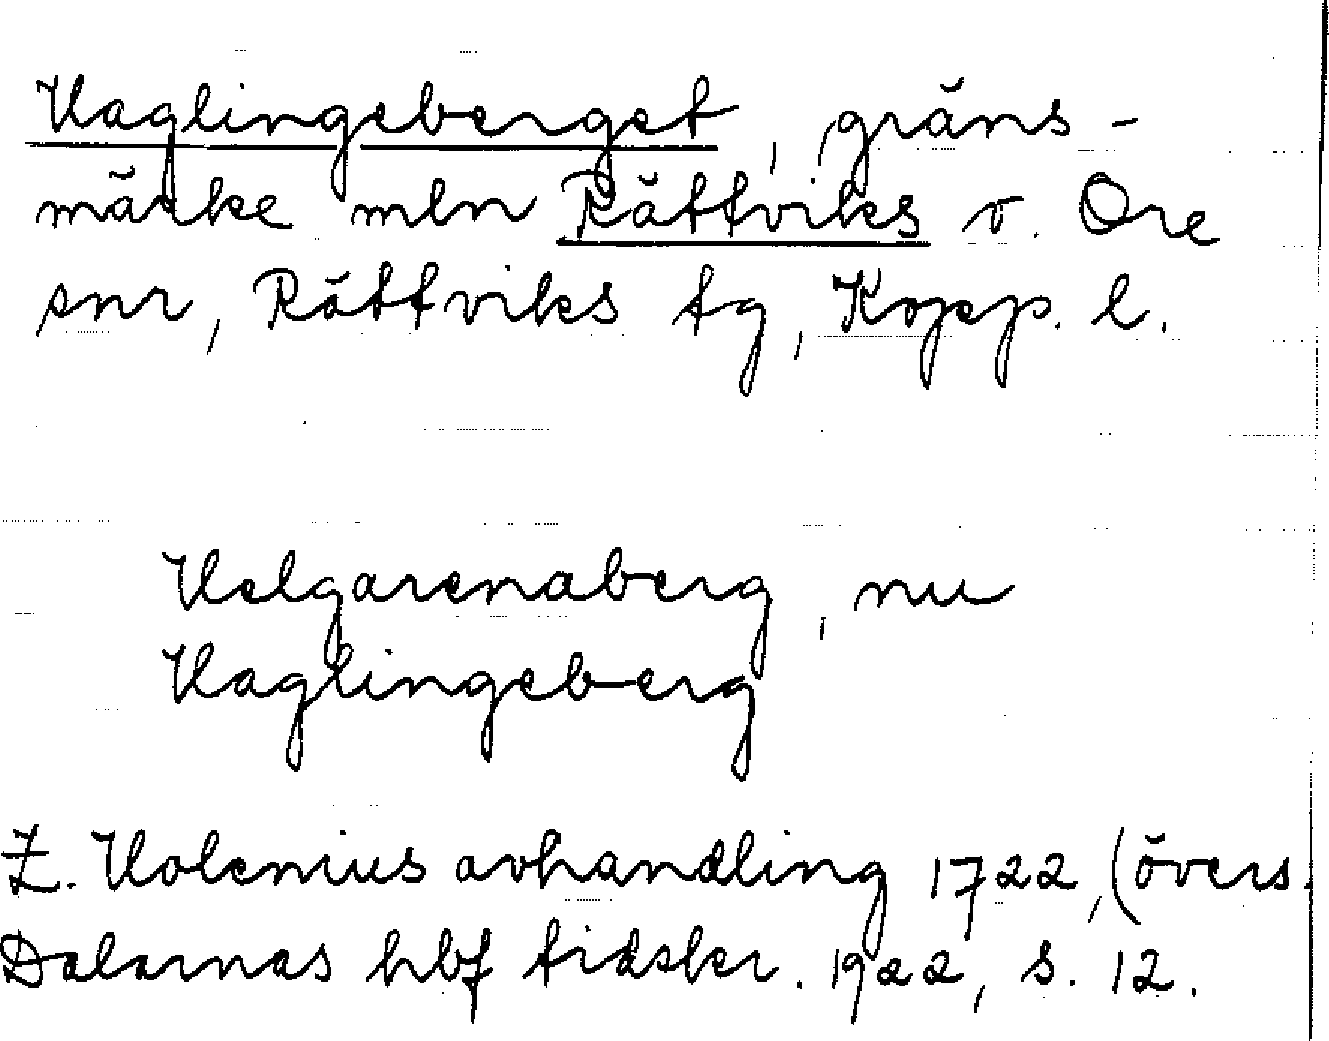 Vaglingeberget, gräns-
märke mln Rättviks o. Ore
snr, Rättviks tg, Kopp. l.
Velgarenaberg, nu
Vaglingeberg
Z. Volenius avhandling 1722, (övers.
Dalarnas hbf tidskr. 1922, s. 12.